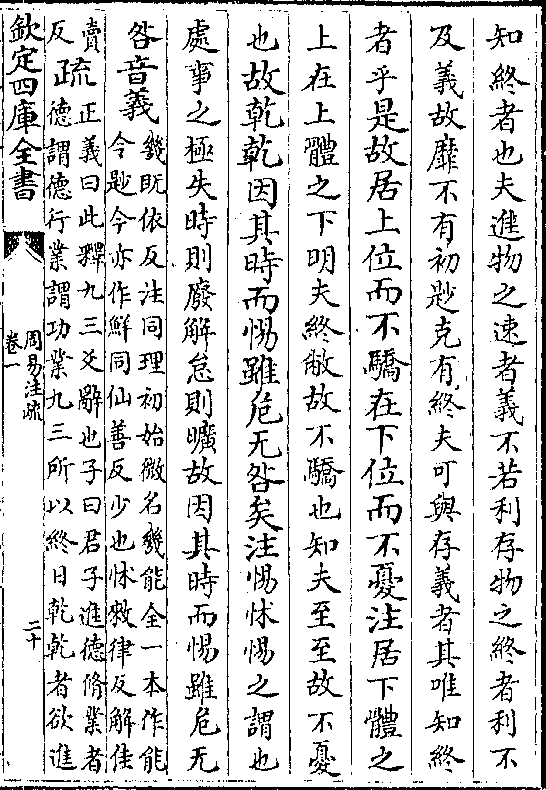 知終者也夫進物之速者義不若利存物之終者利不
及義故靡不有初尠克有終夫可與存義者其唯知終
者乎是故居上位而不驕在下位而不憂注居下體之
上在上體之下明夫終敝故不驕也知夫至至故不憂
也故乾乾因其時而惕雖危无咎矣注惕怵惕之謂也
處事之極失時則廢解怠則曠故因其時而惕雖危无
咎音義
幾既依反注同理初始微名幾能全一本作能
令尠今亦作鮮同仙善反少也怵敕律反解佳
賣反
疏
正義曰此釋九三爻辭也子曰君子進德脩業者
德謂德行業謂功業九三所以終日乾乾者欲進
欽定四庫全書
周易注疏
卷一
二十